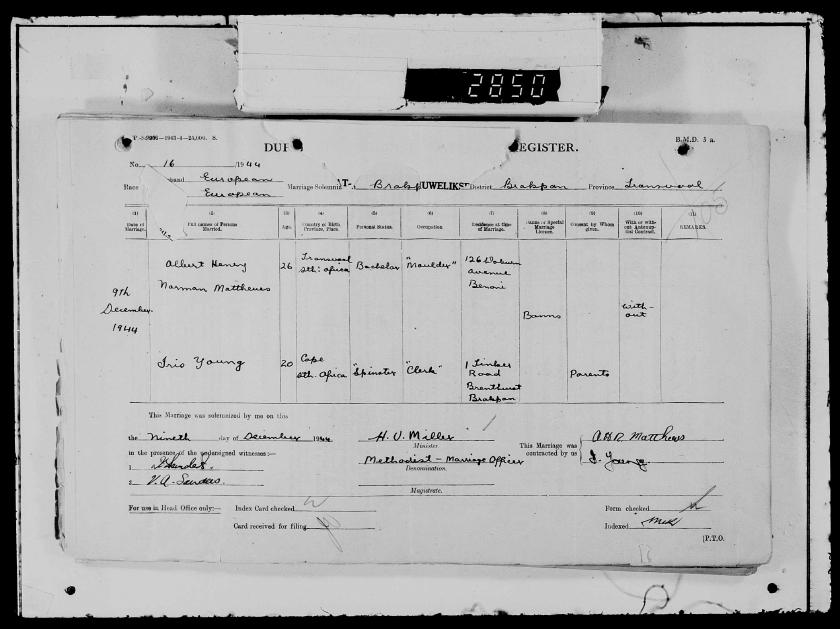 2850
1943-4-25,000. S.
B.M.D. 5 a.
DUP EGISTER.
No. 16 /1944
Race band European
European
Marriage Solemniz AT Brakp HUWELIKS District Brakpan Province Transvaal
(1) (2) (3) (4) (5) (6) (7) (8) (9) (10) (11)
Date of Marriage. Full names of Persons Married. Age. Country of Birth Province, Place. Personal Status. Occupation Residence at time of Marriage. Banns or Special Marriage Licence. Consent by Whom given. With or without Antenuptial Contract. REMARKS.
Albert Henry 26 Transvaal Sth: Africa Bachelor "Moulder" 126 Woburn Avenue Benoni
Norman Matthews
9th December 1944 Banns with-out
Iris Young 20 Cape Sth. Africa "Spinster "Clerk" 1 Road Brenthurst Brakpan Parents
This Marriage was solemnized by me on this
the Nineth day of December 1944
in the presence of the undersigned witnesses:—
1
2 V.A. Sanders.
H. V. Miller
Minister.
Methodist - Marriage Officer
Denomination.
Magistrate.
This Marriage was contracted by us
Matthews
I. Young.
For use in Head Office only:— Index Card checked
Card received for filing
Form checked
Indexed
[P.T.O.